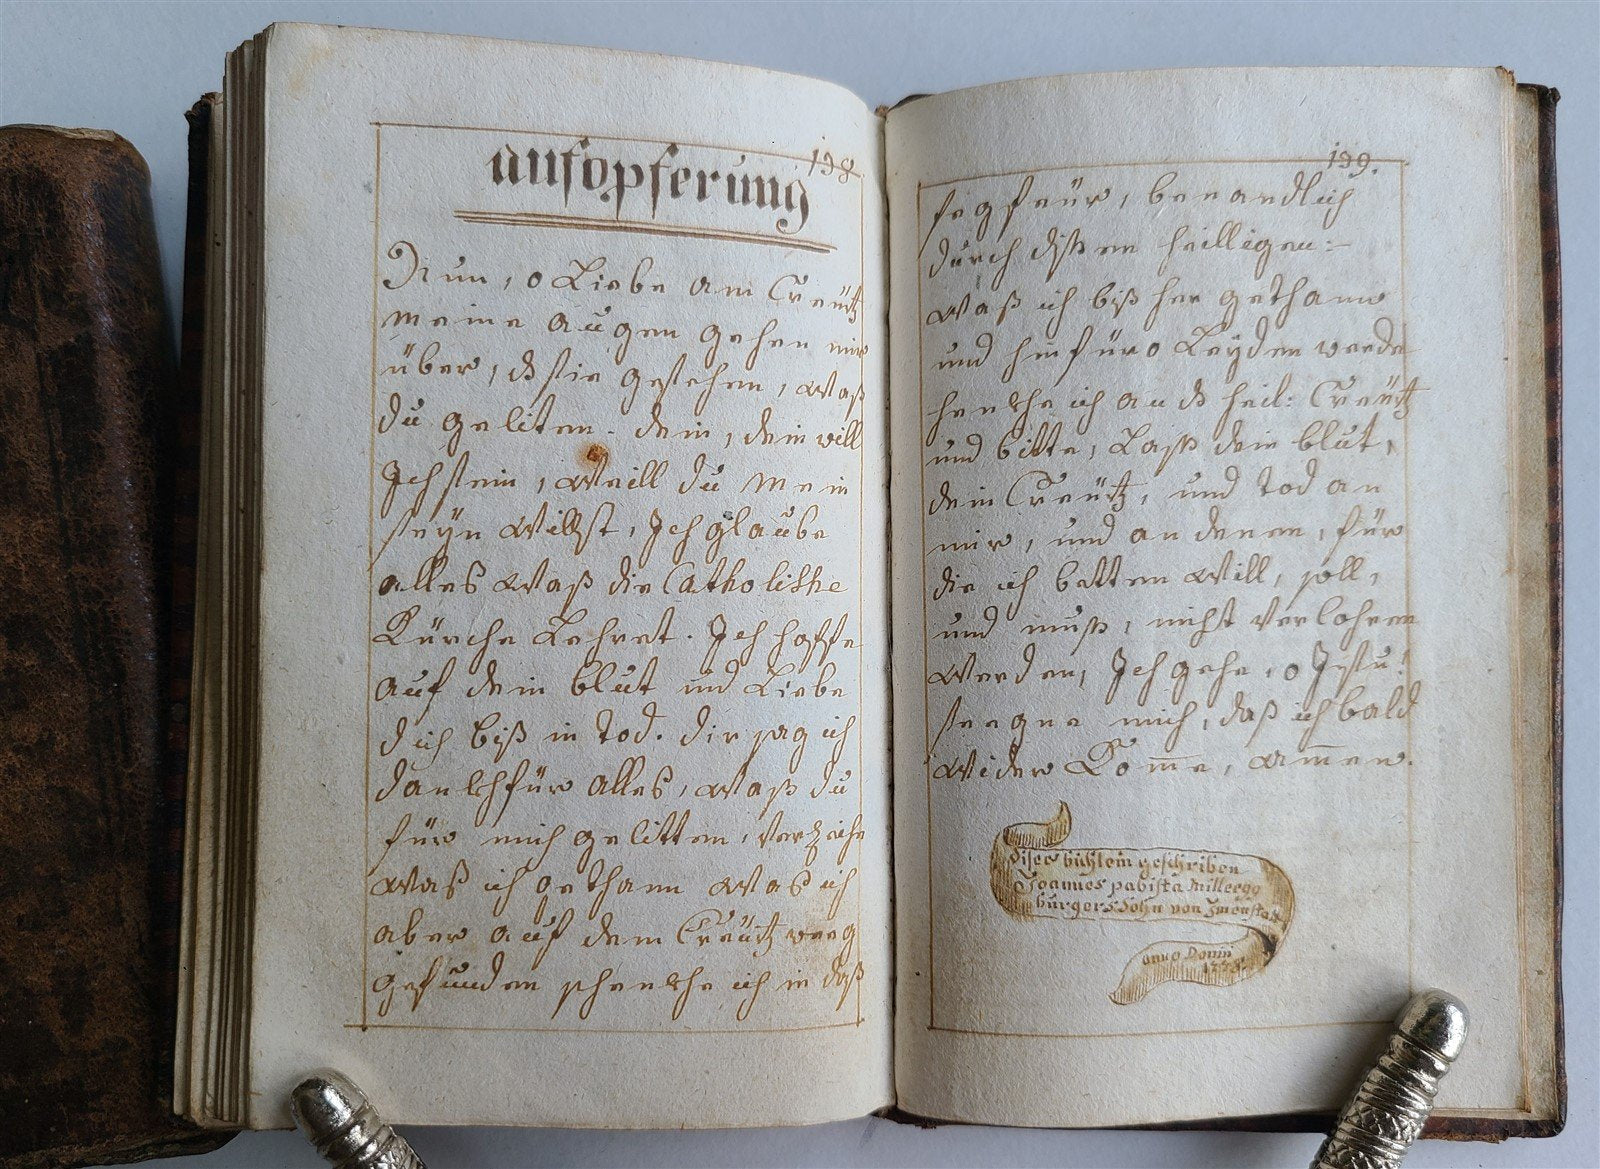 138.
aufopferung
Nun, o Liebe am Creütz
meine augen gehen mir
über, dß sie gestehen, waß
du geliten. dein, dein will
Jch sein, Weill du mein
seyn willst, Jch glaube
alles waß die Catholishe
Kürche Lehret. Jch hoffe
auf dein blut und Liebe
dich biß in tod. dir sag ich
danckh für alles, waß du
für mich gelitten, verzeihe
waß ich gethann waß ich
aber auf dem Creütz weeg
gefunden schenckhe ich in daß
139.
fegfeür, benandlich
durch dißen heilligen:-
waß ich biß her gethann
und hinfüro Leyden werde
henckhe ich an dß heil: Creütz
und bitte, Laß dein blut,
dein Creütz, und tod an
mir, und an denen, für
die ich betten will, soll,
und muß, nicht verlohren
werden, Jch gehe, o Jesu!
seegne mich, daß ich bald
wider Kom̅e, am̅en.
dises büchlein geschriben
Joannes pabista Milleegg
burgers Sohn von
anno Domini